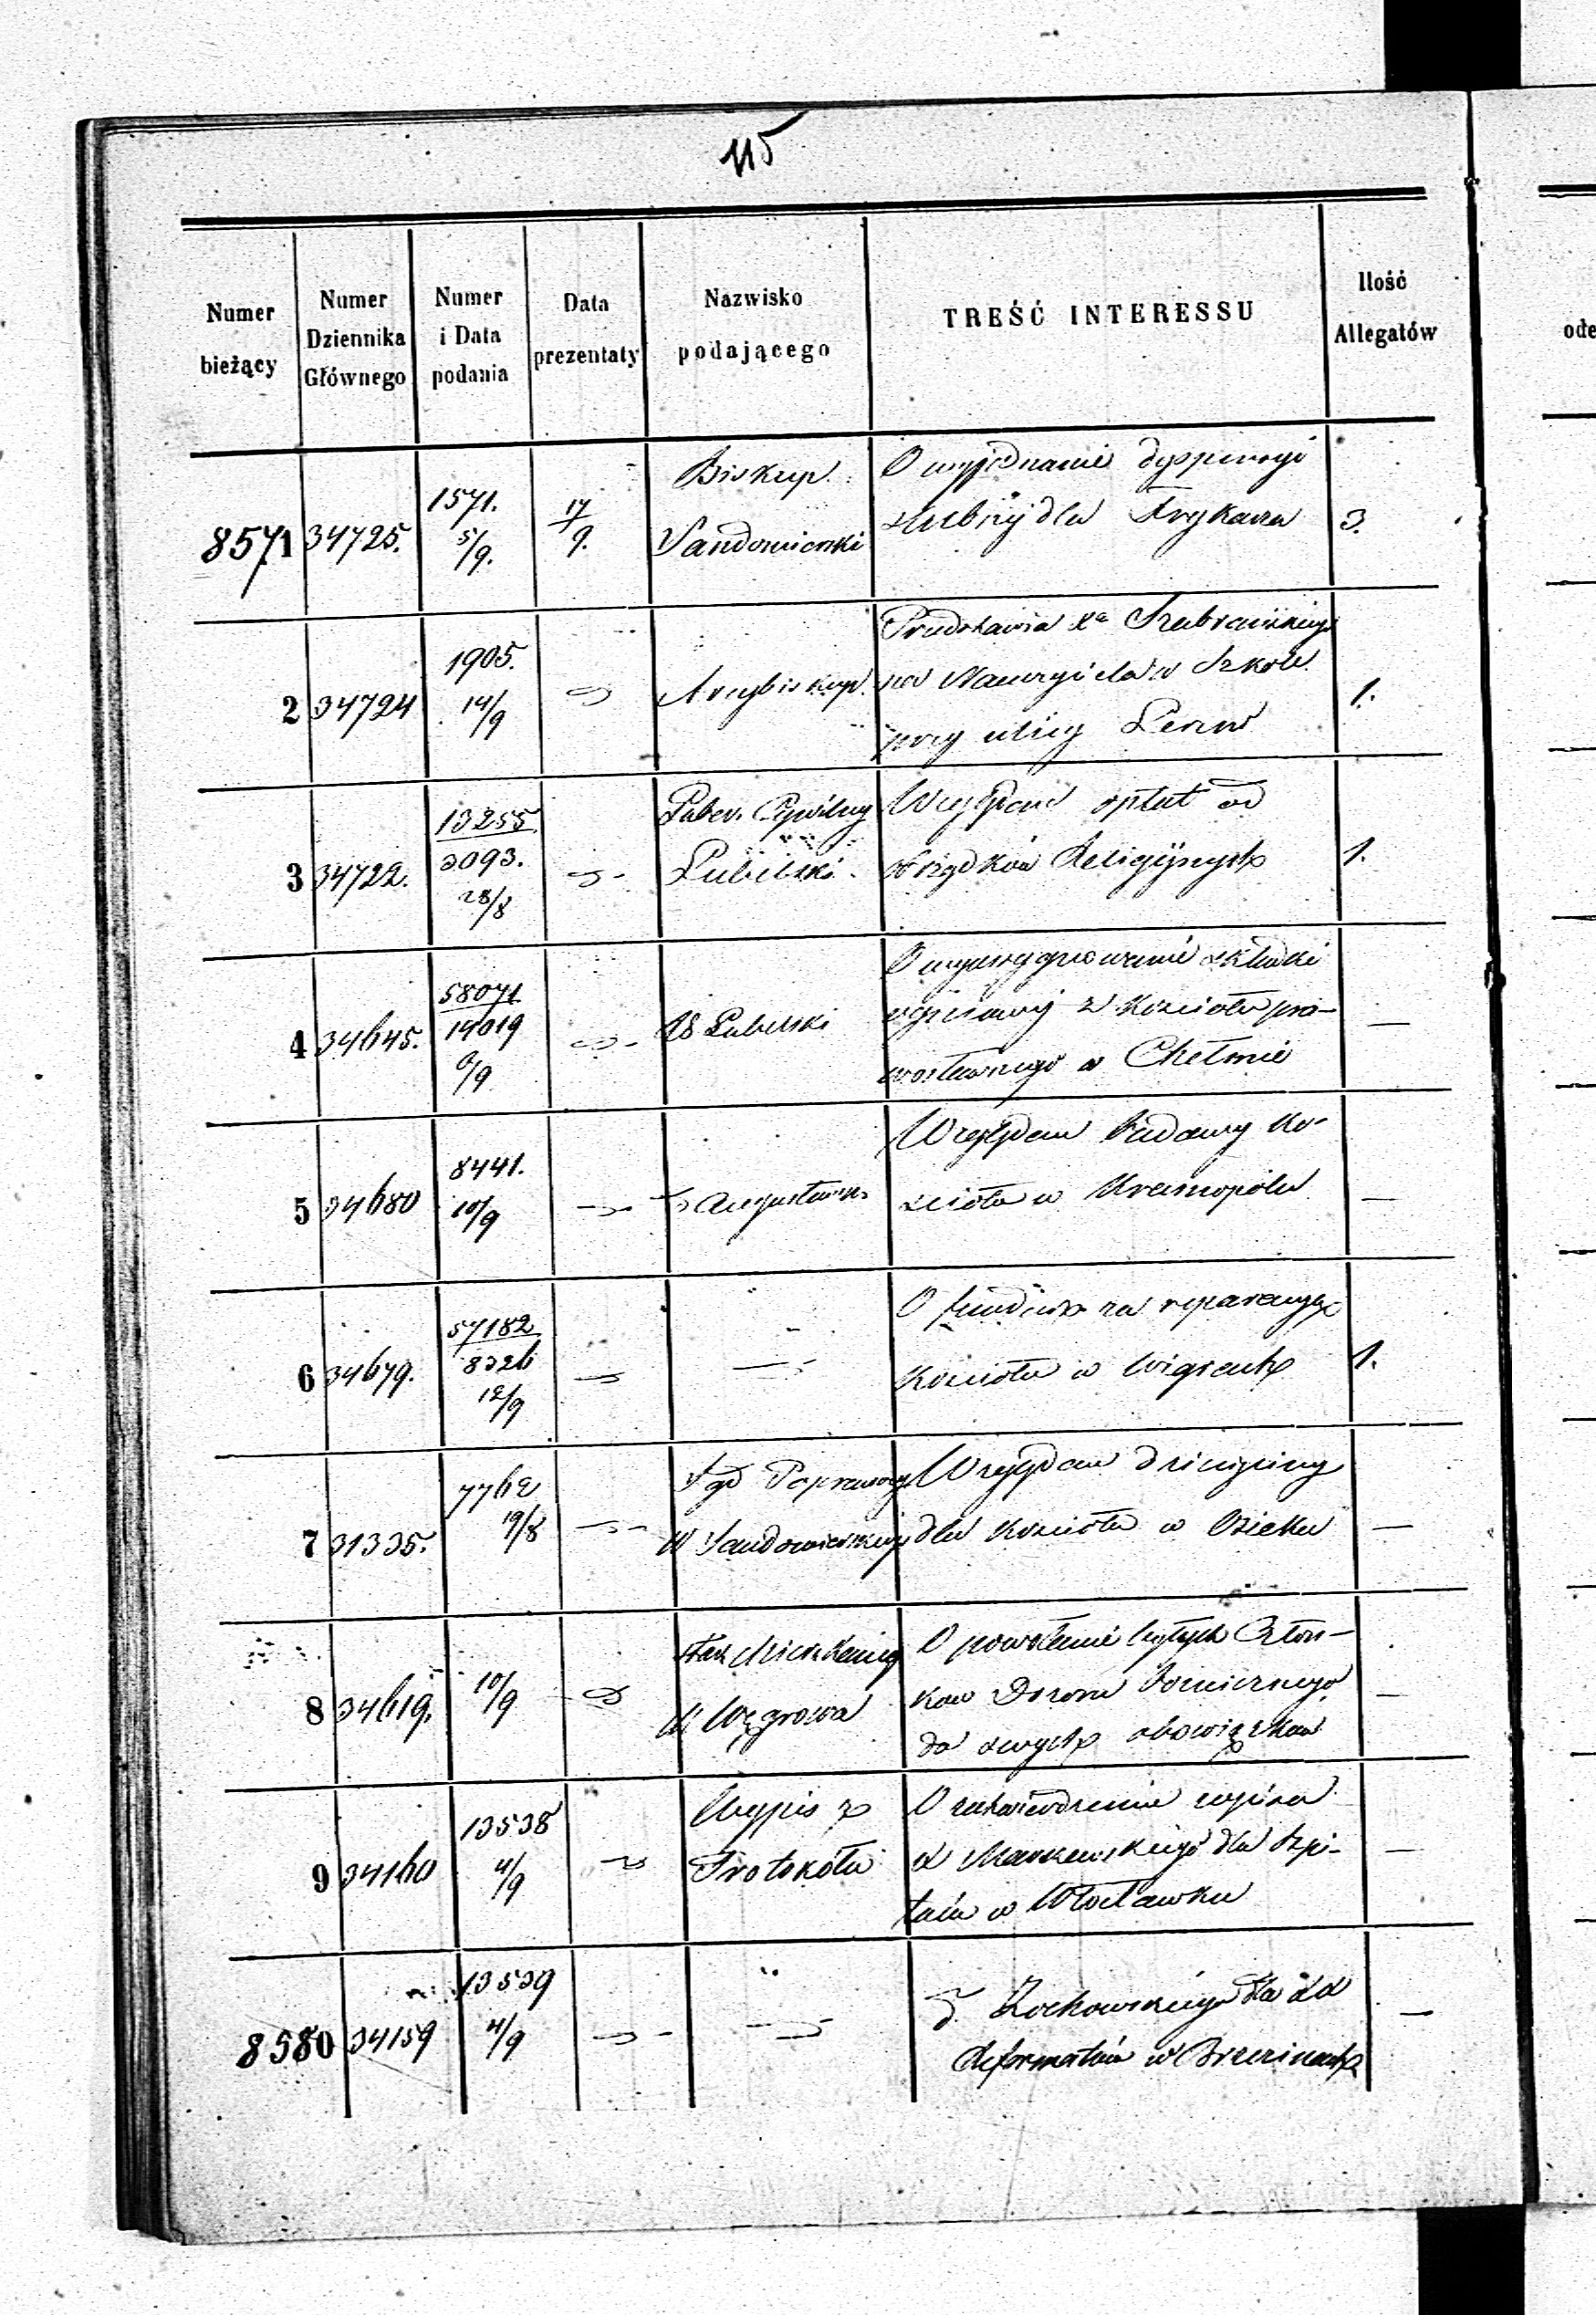 115
Numer bieżący | Numer Dziennika Głównego | Numer i Data podania | Data prezentaty | Nazwisko podającego | TREŚĆ INTERESSU | Ilość Allegatów
ode
8571 | 34725. | 1571. 5/9. | 17/9. | Biskup Sandomierski | O wyjednanie dyspensyi ślubnéj dla Frykacza | 3.
2 | 34724 | 1905. 14/9 | Arcybiskup. | Przedstawia Xa Szubrawskiego na Nauczyciela w Szkole przy ulicy Leszno | 1.
3 | 34722. | 13255 / 3093. 28/8 | Guber. Cywilny Lubelski | Względem opłat od obrządków Religijnych | 1.
4 | 34645. | 58071 / 14019 9/9 | Lubelski | O wyasygnowanie składki ogniowéj z Kościoła prawosławnego w Chełmie | —
5 | 34680 | 8441. 10/9 | Augustows. | Względem budowy Kościoła w Krasnopolu | —
6 | 34679. | 57182 / 8326 12/9 | O fundusz na reparacyą Kościoła w Wigrach | 1.
7 | 31335. | 7762 19/8 | Sąd Poprawczy W Sandomierskiego | Względem dziesięciny dla Kościoła w Osieku | —
8 | 34619. | 10/9 | Mieszkańcy Węgrowa | O powołanie byłych Członków Dozoru Bożniczego do swych obowiązków | —
9 | 34160 | 13538 4/9 | Wypis z Protokołu | O zatwierdzenie zapisu Maszewskiego dla Szpitala w Włocławku | —
8580 | 34159 | 13539 4/9 | Żochowskiego dla XX Reformatów w Brzezinach | —